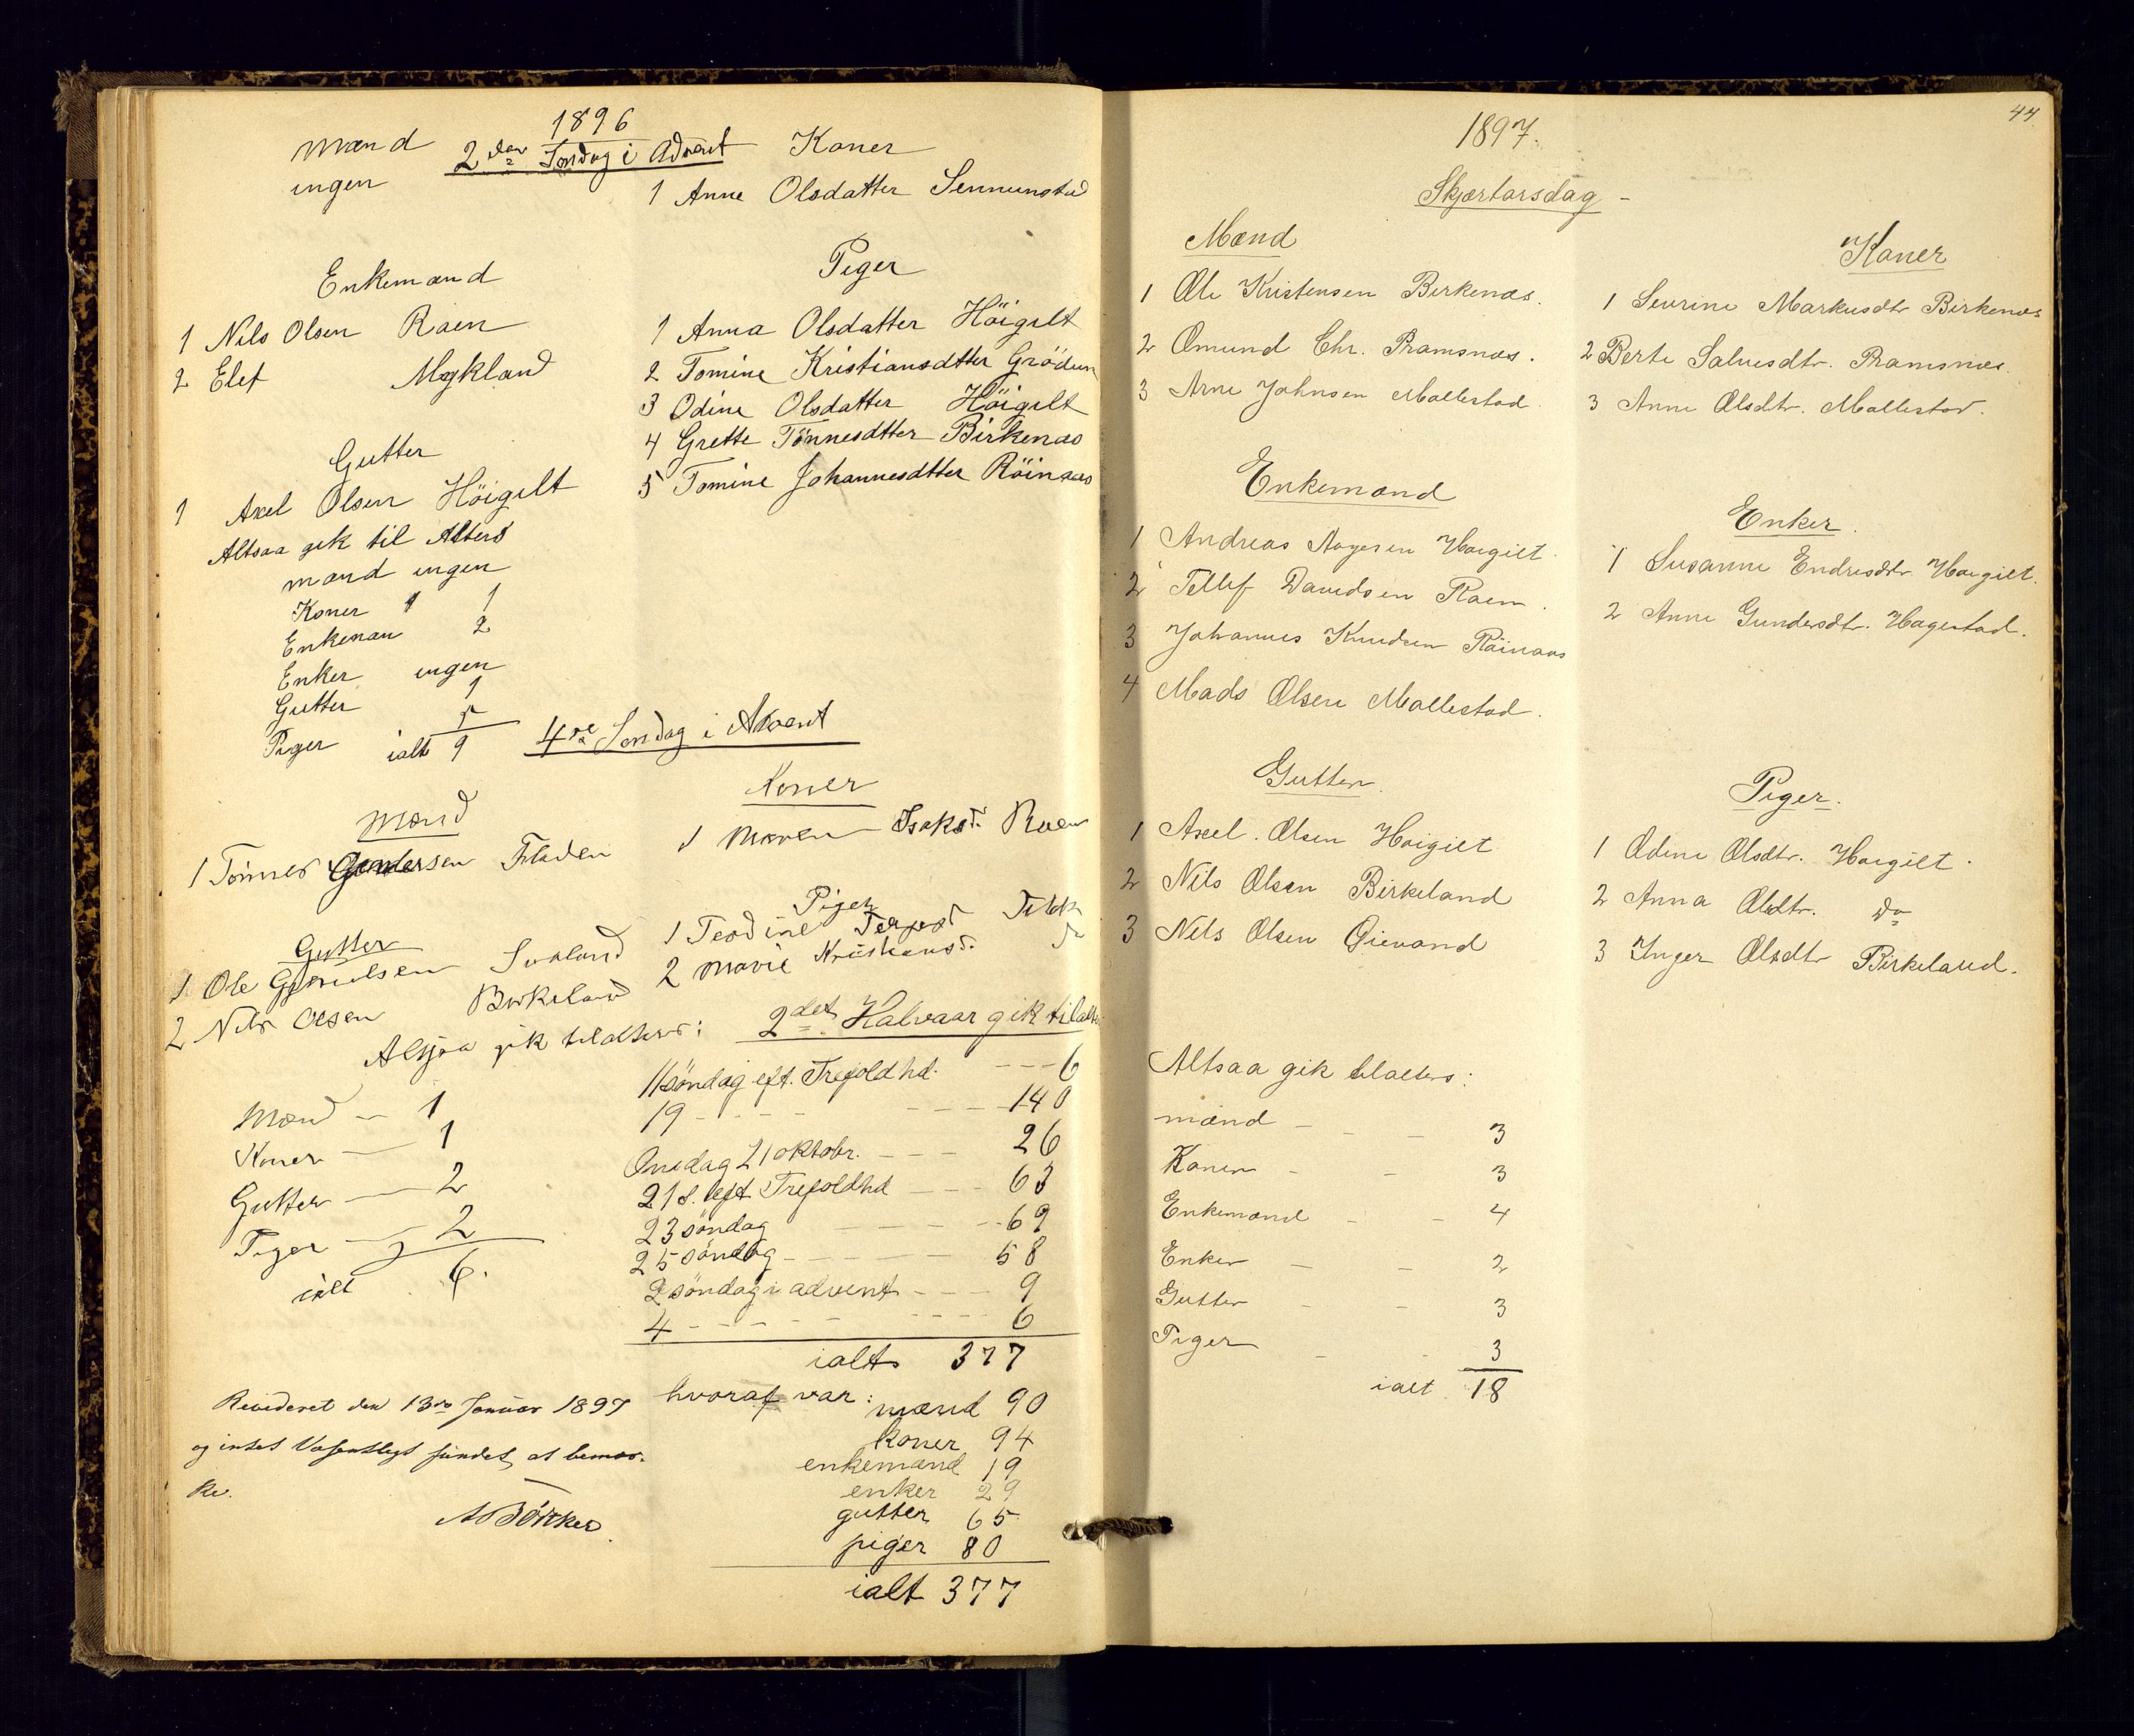 1896
2den Søndag i Advent
Mænd
ingen
Koner
1 Anne Olsdatter Sennumstad
Enkemænd
1 Nils Olsen Raen
2 Elef Mykland
Piger
1 Anna Olsdatter Höigilt
2 Tomine Kristiansdtter Grödum
3 Odine Olsdatter Höigilt
4 Grette Tönnesdtter Birkenæs
5 Tomine Johannesdtter Röinaas
Gutter
1 Axel Olsen Höigilt
Altsaa gik til Alters
mænd ingen
Koner 1
Enkemæn 2
Enker ingen
Gutter 1
Piger 5
ialt 9
4de Søndag i Advent
Mænd
1 Tönnes Gundersen Fladen
Koner
1 Maren Isaksd. Raen
Gutter
1 Ole Svaland
2 Nils Olsen Birkeland
Piger
1 Teodine Terjesd
2 Marie Kristiansd.
Altsaa gik tilalters:
Mænd 1
Koner 1
Gutter 2
Piger 2
ialt 6.
2det Halvaar gik tilalters
11 söndag eft. Trefoldhd. 6
19 - - - 140
Onsdag 21 oktobr. 26
21 s. eft. Trefoldhd 63
23 söndag 69
25 söndag 58
2 söndag i advent 9
4 - - - 6
ialt 377
hvoraf var:
mænd 90
koner 94
enkemænd 19
enker 29
gutter 65
piger 80
ialt 377
Revideret den 13de Januar 1897
og intet Væsentligt fundet at bemær-
ke.
44
1897.
Skjærtorsdag -
Mænd
1 Ole Kristensen Birkenæs.
2 Omund Chr. Pramsnæs.
3 Arne Johnsen Mollestad
Koner
1 Severine Markusdtr Birkenæs
2 Berte Salvesdtr. Pramsnæs.
3 Anne Olsdtr. Mollestad.
Enkemænd
1 Andreas Aagesen Høigilt.
2 Tellef Davidsen Raen.
3 Johannes Knudsen Röinaas
4 Mads Olsen Mollestad.
Enker.
1 Susanne Endresdtr. Høigilt.
2 Anne Gundersdtr. Hagestad.
Gutter.
1 Axel. Olsen Høigilt
2 Nils Olsen Birkeland
3 Nels Olsen Øievand
Piger.
1 Odine Olsdtr. Høigilt.
2 Anna Olsdtr. do
3 Inger Olsdtr Birkeland.
Altsaa gik tilalters:
mænd - - - 3
Koner - - 3
Enkemænd - - 4
Enker - - 2
Gutter - - 3
Piger - - 3
ialt. 18